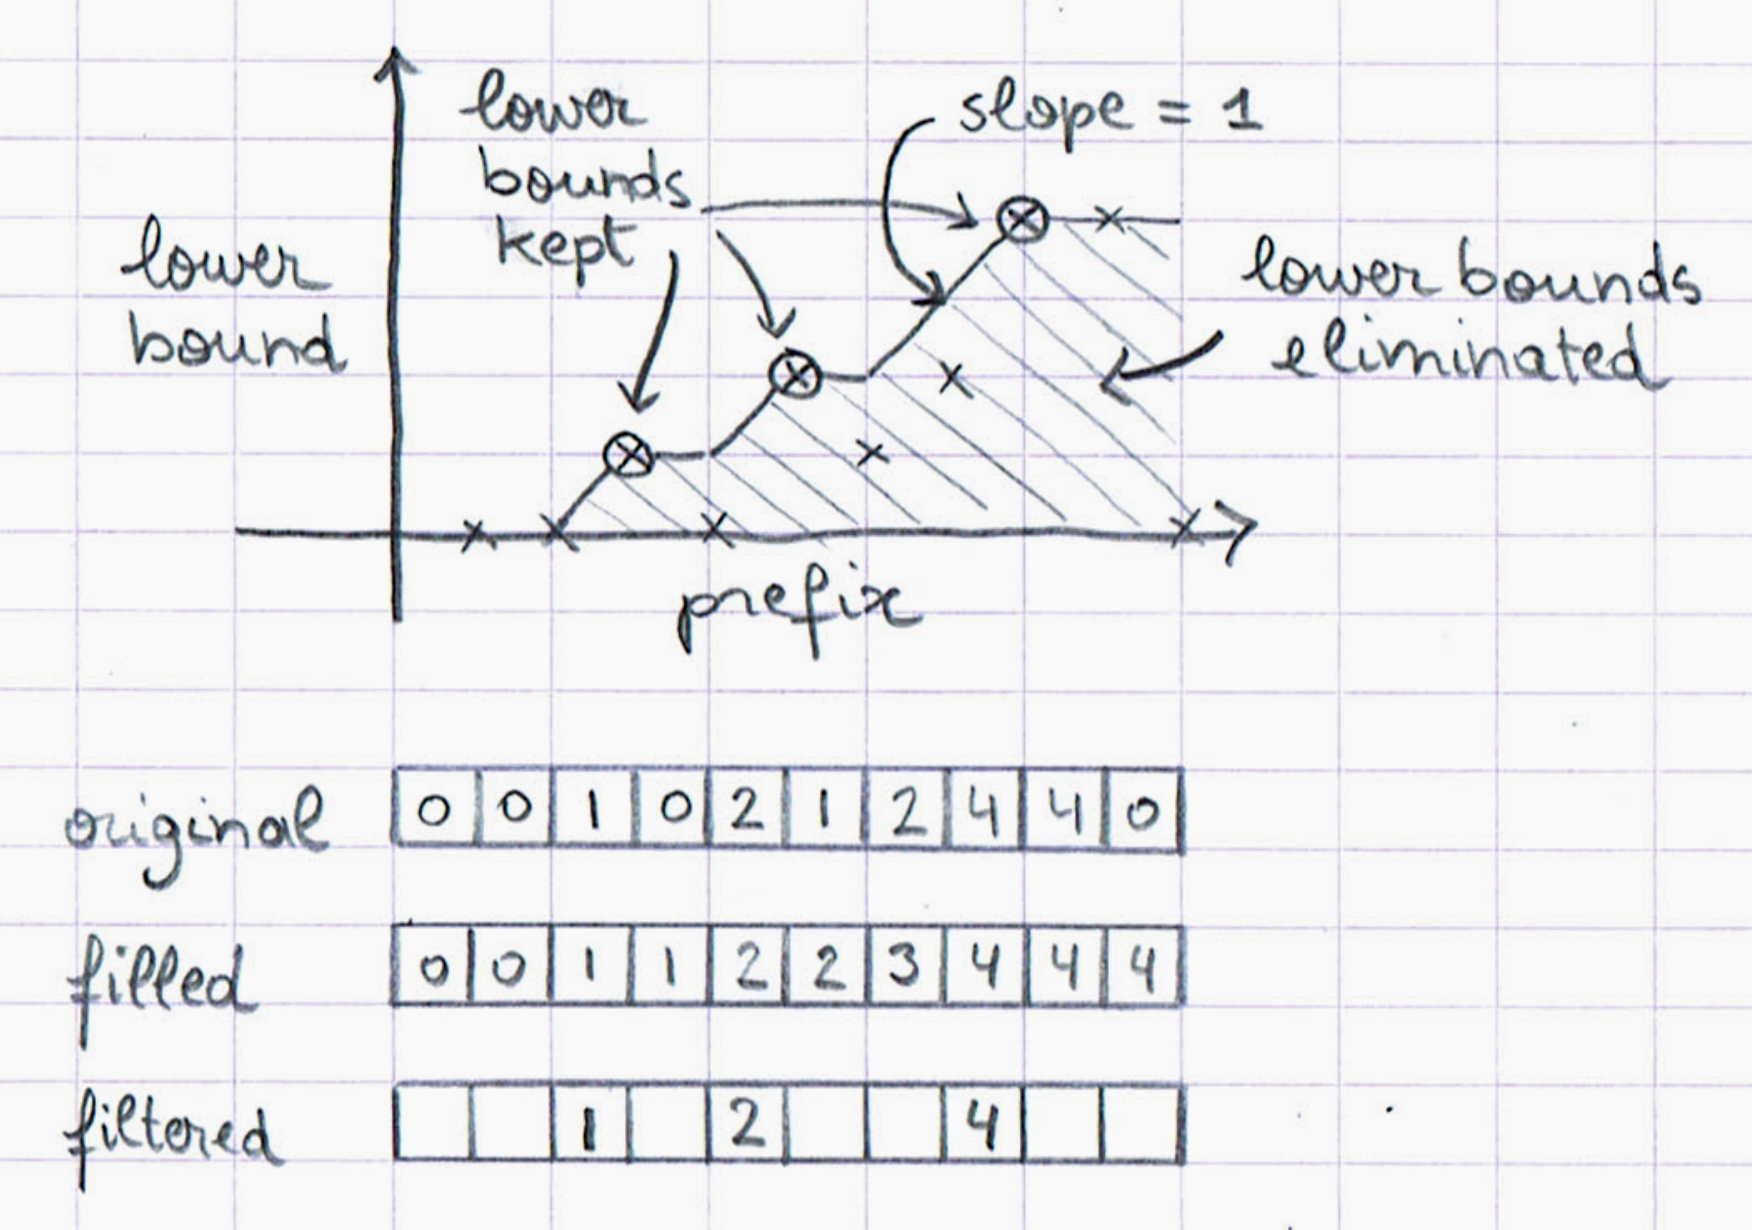 lower
bounds
kept
slope = 1
lower
bound
lower bounds
eliminated
prefix
original 0 0 1 0 2 1 2 4 4 0
filled 0 0 1 1 2 2 3 4 4 4
filtered 1 2 4